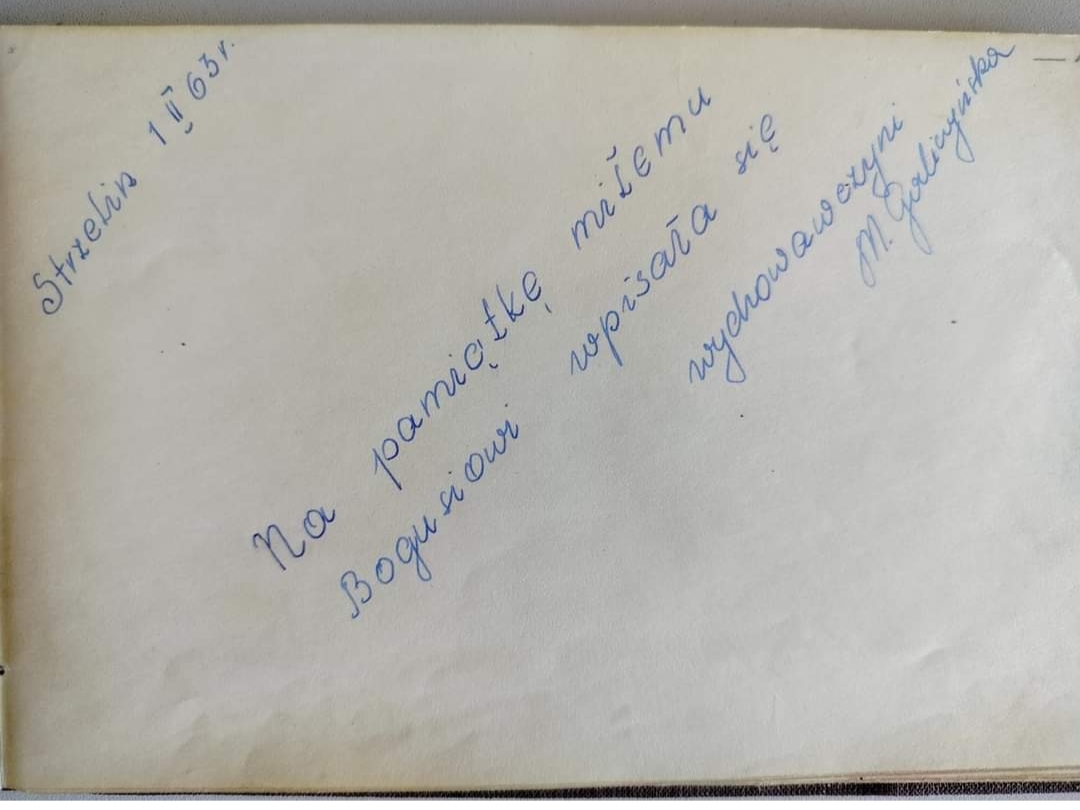 Strzelin 1 II 63 r.
Na pamiątkę miłemu
Bogusiowi wpisała się
wychowawczyni
M.